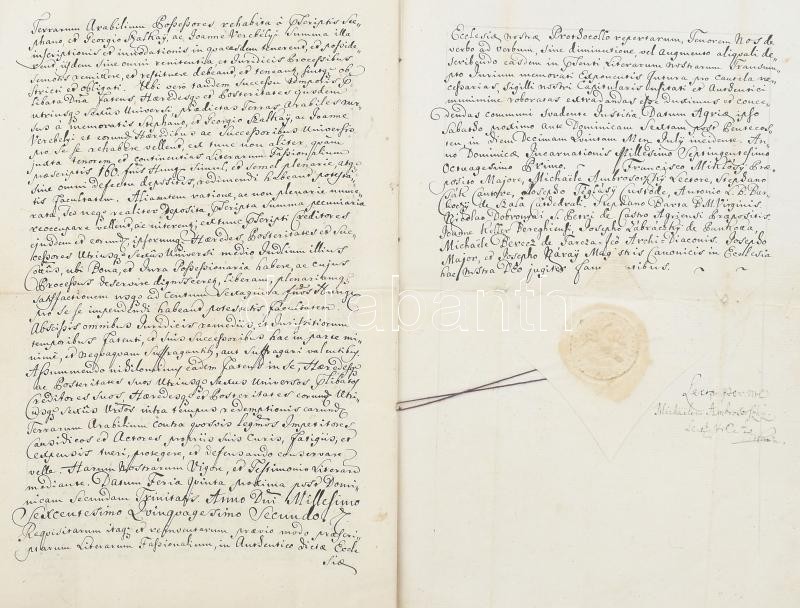 Terrarum Arabilium Possessores rehabita à Pscriptis Ste-
phano, et Georgio Balkay, ac Joanne Verebélyi Summa illa
inscriptionis et inundationis in quaesdam tenerent, et posside-
rent, iisdem sine omni renitentia et Juridicis Processibus
Semotis remittere, et restituere debeant, et teneant
stricti et obligati. Ubi vero tandem Successu temporis P
libata Dna fatens, Haeredes et Posteritates ejusdem
utriusq Sexus Universi praedictas Terras Arabiles rur-
sus à memoratis Stephano, et Georgio Balkay, ac Joanne
Verebélyi et eorundem Haeredibus ac Successoribus Universis
pro Se se rehabere vellent, ex tunc non aliter, quam
juxta tenorem, et continentias Literarum Fassionalium
praescriptis 160. fnis Hung Simul, et Semel plenarie, atq
Sine omni defectu depositis, redimendi habeant potesta-
tis Facultatem. Aliamtum ratione, ac non plenarie nume-
rata, Seu neq realiter deposita Pscripta Summa pecuniaria
reoccupare vellent, ac niterent, ex tunc Pscripti Creditores
ejusdem et eorundem ipsorumq Haeredes Posteritates et Suc-
cessores Utriusq Sexus Universi medio Judlium illius
Cottus, ubi Bona, et Jura Possessionaria habere, ac cujus
Processus deservire dignosceret, liberam, plenariamq
Satisfactionem usq ad Centum Sexaginta fnos Hunge
pro Se se impendendi habeant potestatis facultatem.
Abscissis omnibus Juridicis remediis, et Juristitiorum
temporibus fatenti, et Suis Successoribus hac in parte mi-
nime, et nequaquam Suffragantibus, aut Suffragari valentibus
Assummendo nihilominus eadem fatens in Se, Haeredesq
ac Posteritates Suos Utriusq Sexus Universos, Plibatos
Creditores Suos, Haeredesq et Posteritates eorundem Utri-
usq Sexus Unsos intra tempus redemptionis earundem
Terrarum Arabilium Contra quosvis legmos Impetitores
Causidicos et Actores, propriis Suis Curis, fatigiis, et
expensis tueri, protegere, et defensando conservare
velle. Harum Nostrarum Vigore, et Testimonio Literarum
mediante. Datum Feria Quinta proxima post Domi-
nicam Secundam Trinitatis. Anno Dni Millesimo
Sexcentesimo Quinquagesimo Secundo.
Requisitarum itaq et reinventarum praevio modo praescri-
ptarum Literarum Fassionalium, in Authentico dictae Eccle
siae
Ecclesiae nostrae Prothocollo repertarum, Tenorem Nos de
verbo ad verbum, sine diminutione, vel augmento aliquali de-
scribendo easdem in Psenti Literarum Nostrarum Transum-
pto Jurium memorati Exponentis futura pro cautela ne-
cessarias, Sigilli nostri Capitularis impressi et Authentici
munimine roboratas extradandas esse duximus et conce-
dendas communi Svadente Justitia. Datum Agriae ipso
Sabatho proximo Ante Dominicam Sextam post Penteços-
ten, in diem Decimam Quintam Men July incidente. An-
no Dominicae Incarnationis Millesimo Septingentesimo
Octuagesimo Primo. Francisco Miklósy Prae-
posito Majore, Michaele Ambrosovszky Lectore, Stephano
Csák Cantore, Josepho Siglósy Custode, Antonio L. B. Bar-
kóczy de Szala Cathedrali, Stephano Barta B. M. Virginis,
Nicolao Dobronyai S. Petri de Castro Agriensi Praepositis
Joanne Keller Pereghiensi, Josepho Labraczky de
Michaele Berecz de Patcza seo Archi Diaconis. Josepho
Major, et Josepho Váray Magistris Canonicis in Ecclesia
hac nostra Deo jugiter famulantibus.
Lecta per me
Michaelem Ambrosovszky
Darabanth